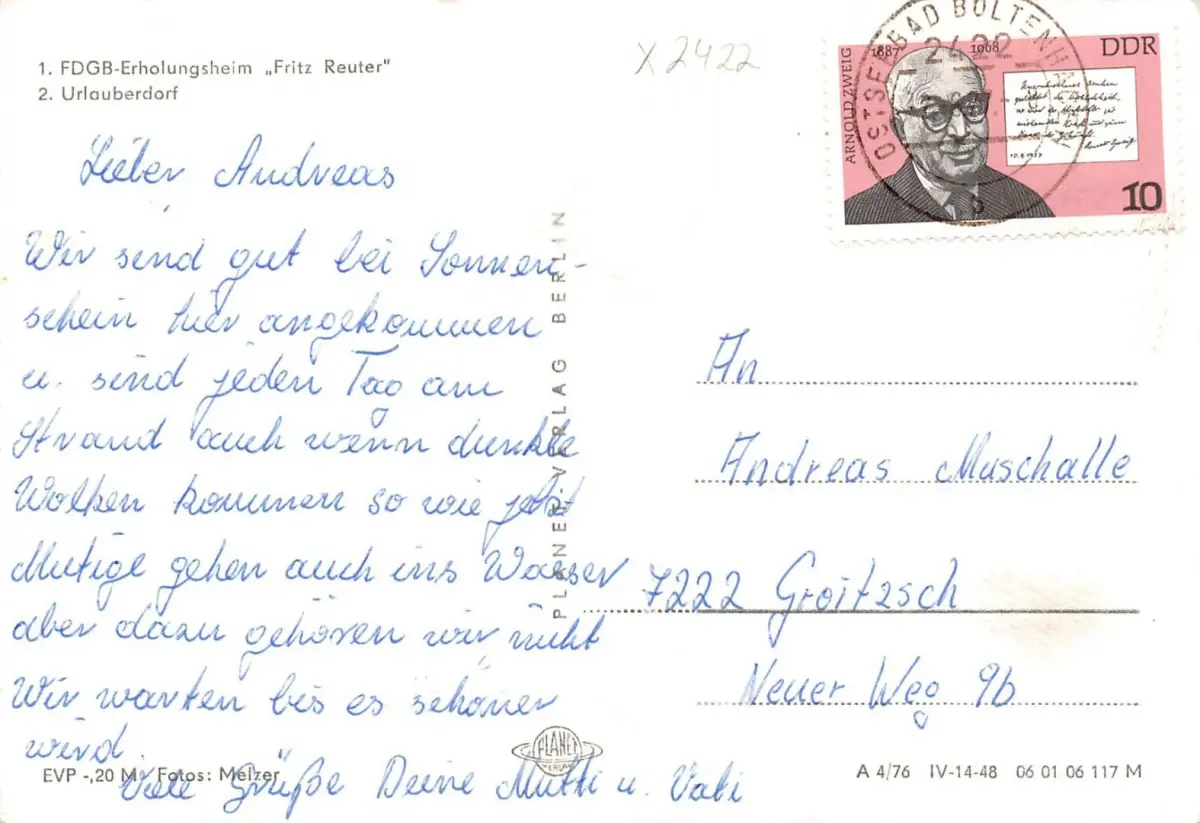 1. FDGB-Erholungsheim „Fritz Reuter"
2. Urlauberdorf
Lieber Andreas
Wir sind gut bei Sonnen-
schein hier angekommen
u. sind jeden Tag am
Strand auch wenn dunkle
Wolken kommen so wie jetzt
Mutige gehen auch ins Wasser
aber dazu gehören wir nicht
Wir warten bis es schöner
wird.
Viele Grüße Deine Mutti u. Vati
EVP -,20 M Fotos: Melzer
PLANET-VERLAG BERLIN
PLANET
VERLAG
X2422
OSTSEEBAD BOLTENH
2422
b
ARNOLD ZWEIG
1887 1968
DDR
10.6.1957
Arnold Zweig
10
An
Andreas Muschalle
7222 Groitzsch
Neuer Weg 9b
A 4/76 IV-14-48 06 01 06 117 M